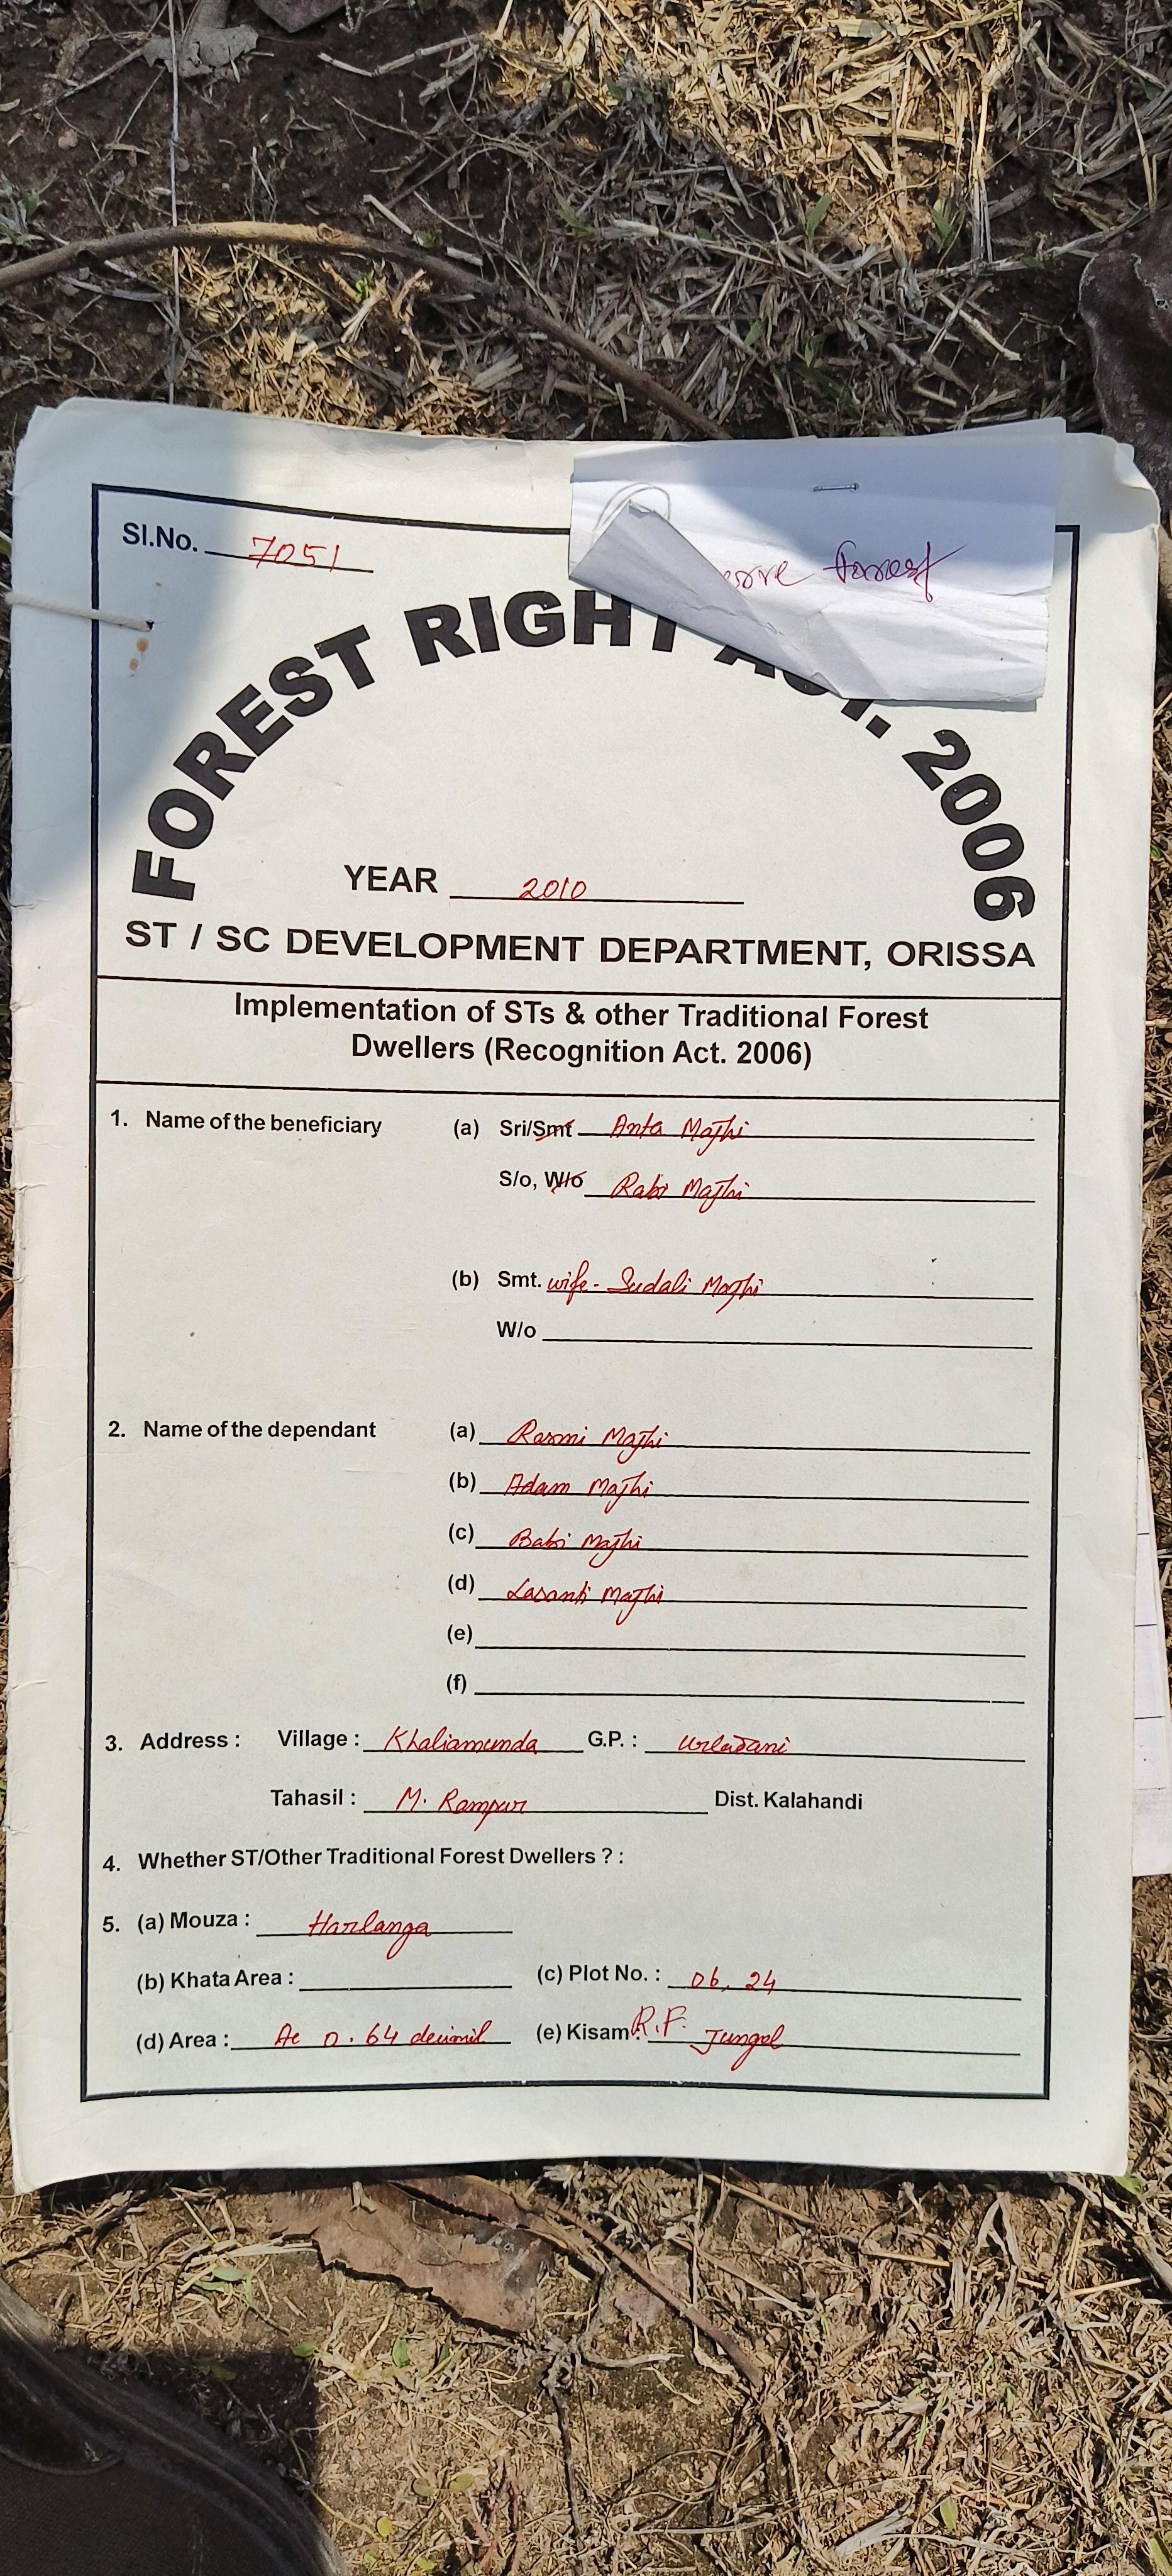 Sl.No. 7051
forest
FOREST RIGHT ACT. 2006
YEAR 2010
ST / SC DEVELOPMENT DEPARTMENT, ORISSA
Implementation of STs & other Traditional Forest
Dwellers (Recognition Act. 2006)
1. Name of the beneficiary (a) Sri/Smt Anta Majhi
S/o, W/o Rabi Majhi
(b) Smt. wife - Sudali Majhi
W/o
2. Name of the dependant (a) Rasmi Majhi
(b) Adam Majhi
(c) Babi Majhi
(d) Lasanti Majhi
(e)
(f)
3. Address : Village : Khaliamunda G.P. : Urladani
Tahasil : M. Rampur Dist. Kalahandi
4. Whether ST/Other Traditional Forest Dwellers ? :
5. (a) Mouza : Harlanga
(b) Khata Area : (c) Plot No. : 06, 24
(d) Area : Ac 0.64 decimil (e) Kisam : R.F. Jungal